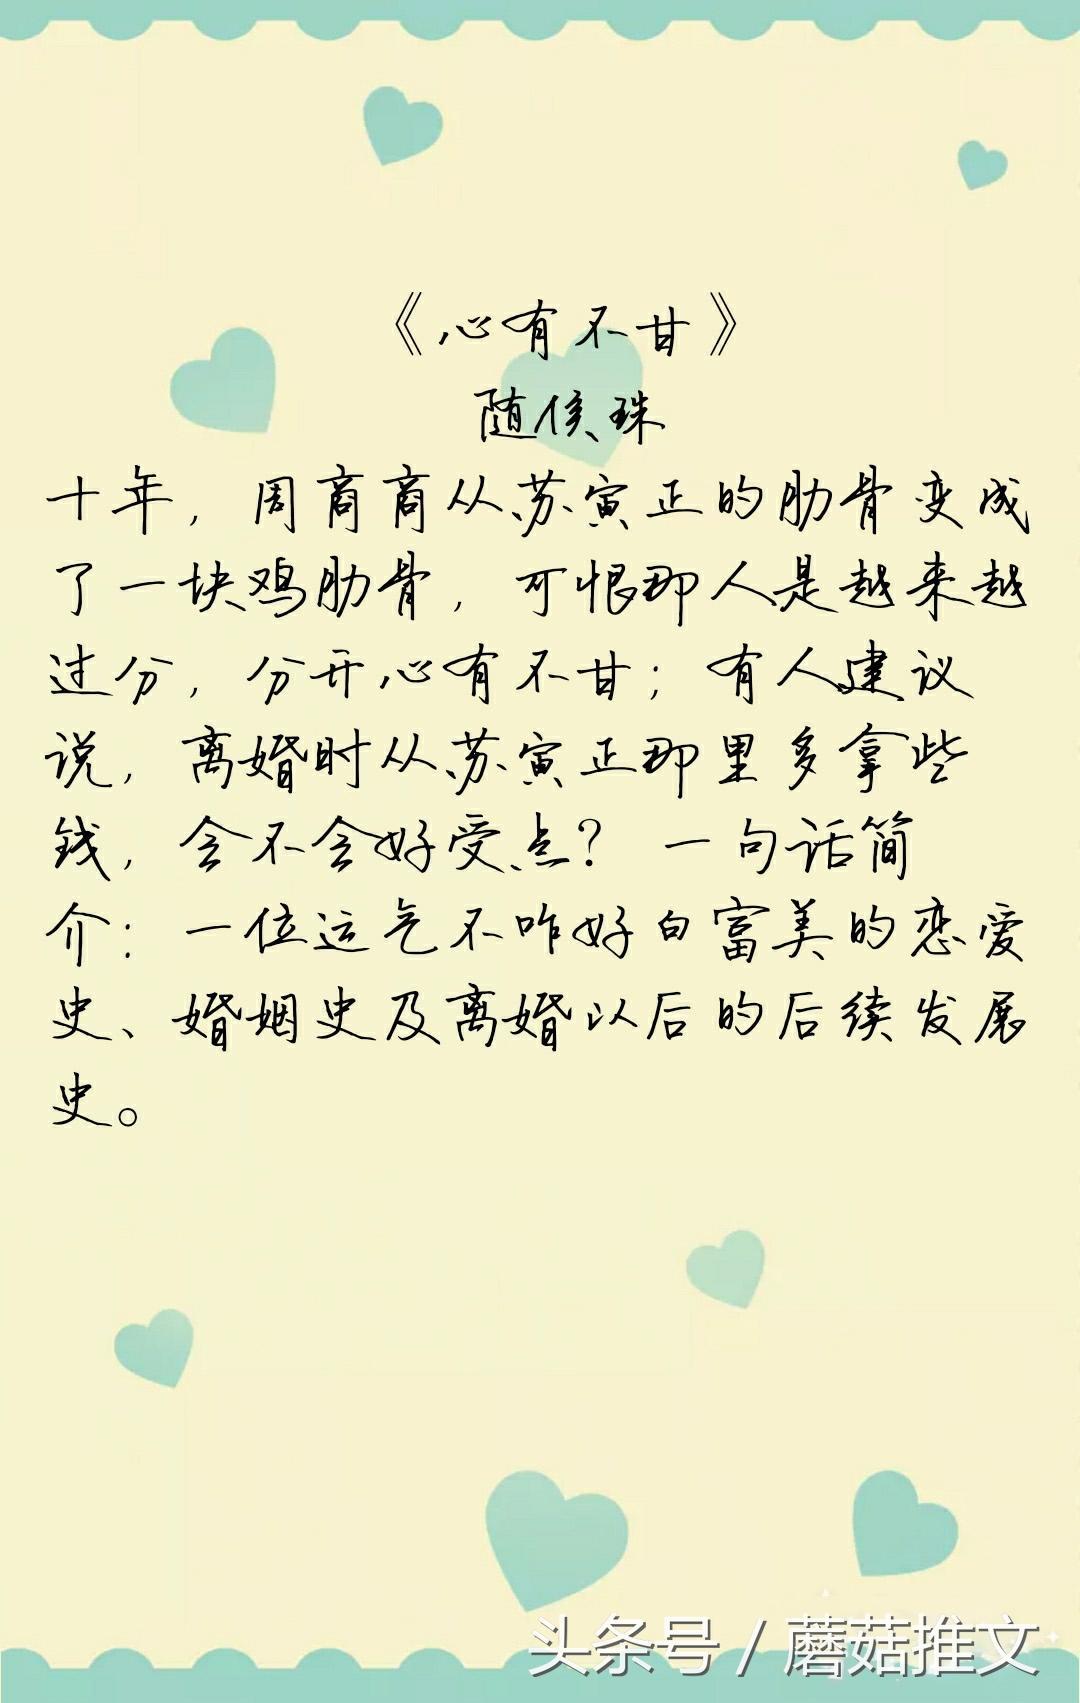 《心有不甘》
随侯珠
十年，周商商从苏寅正的肋骨变成
了一块鸡肋骨，可恨那人是越来越
过分，分开心有不甘；有人建议
说，离婚时从苏寅正那里多拿些
钱，会不会好受点？ 一句话简
介：一位运气不咋好白富美的恋爱
史、婚姻史及离婚以后的后续发展
史。
头条号 / 蘑菇推文